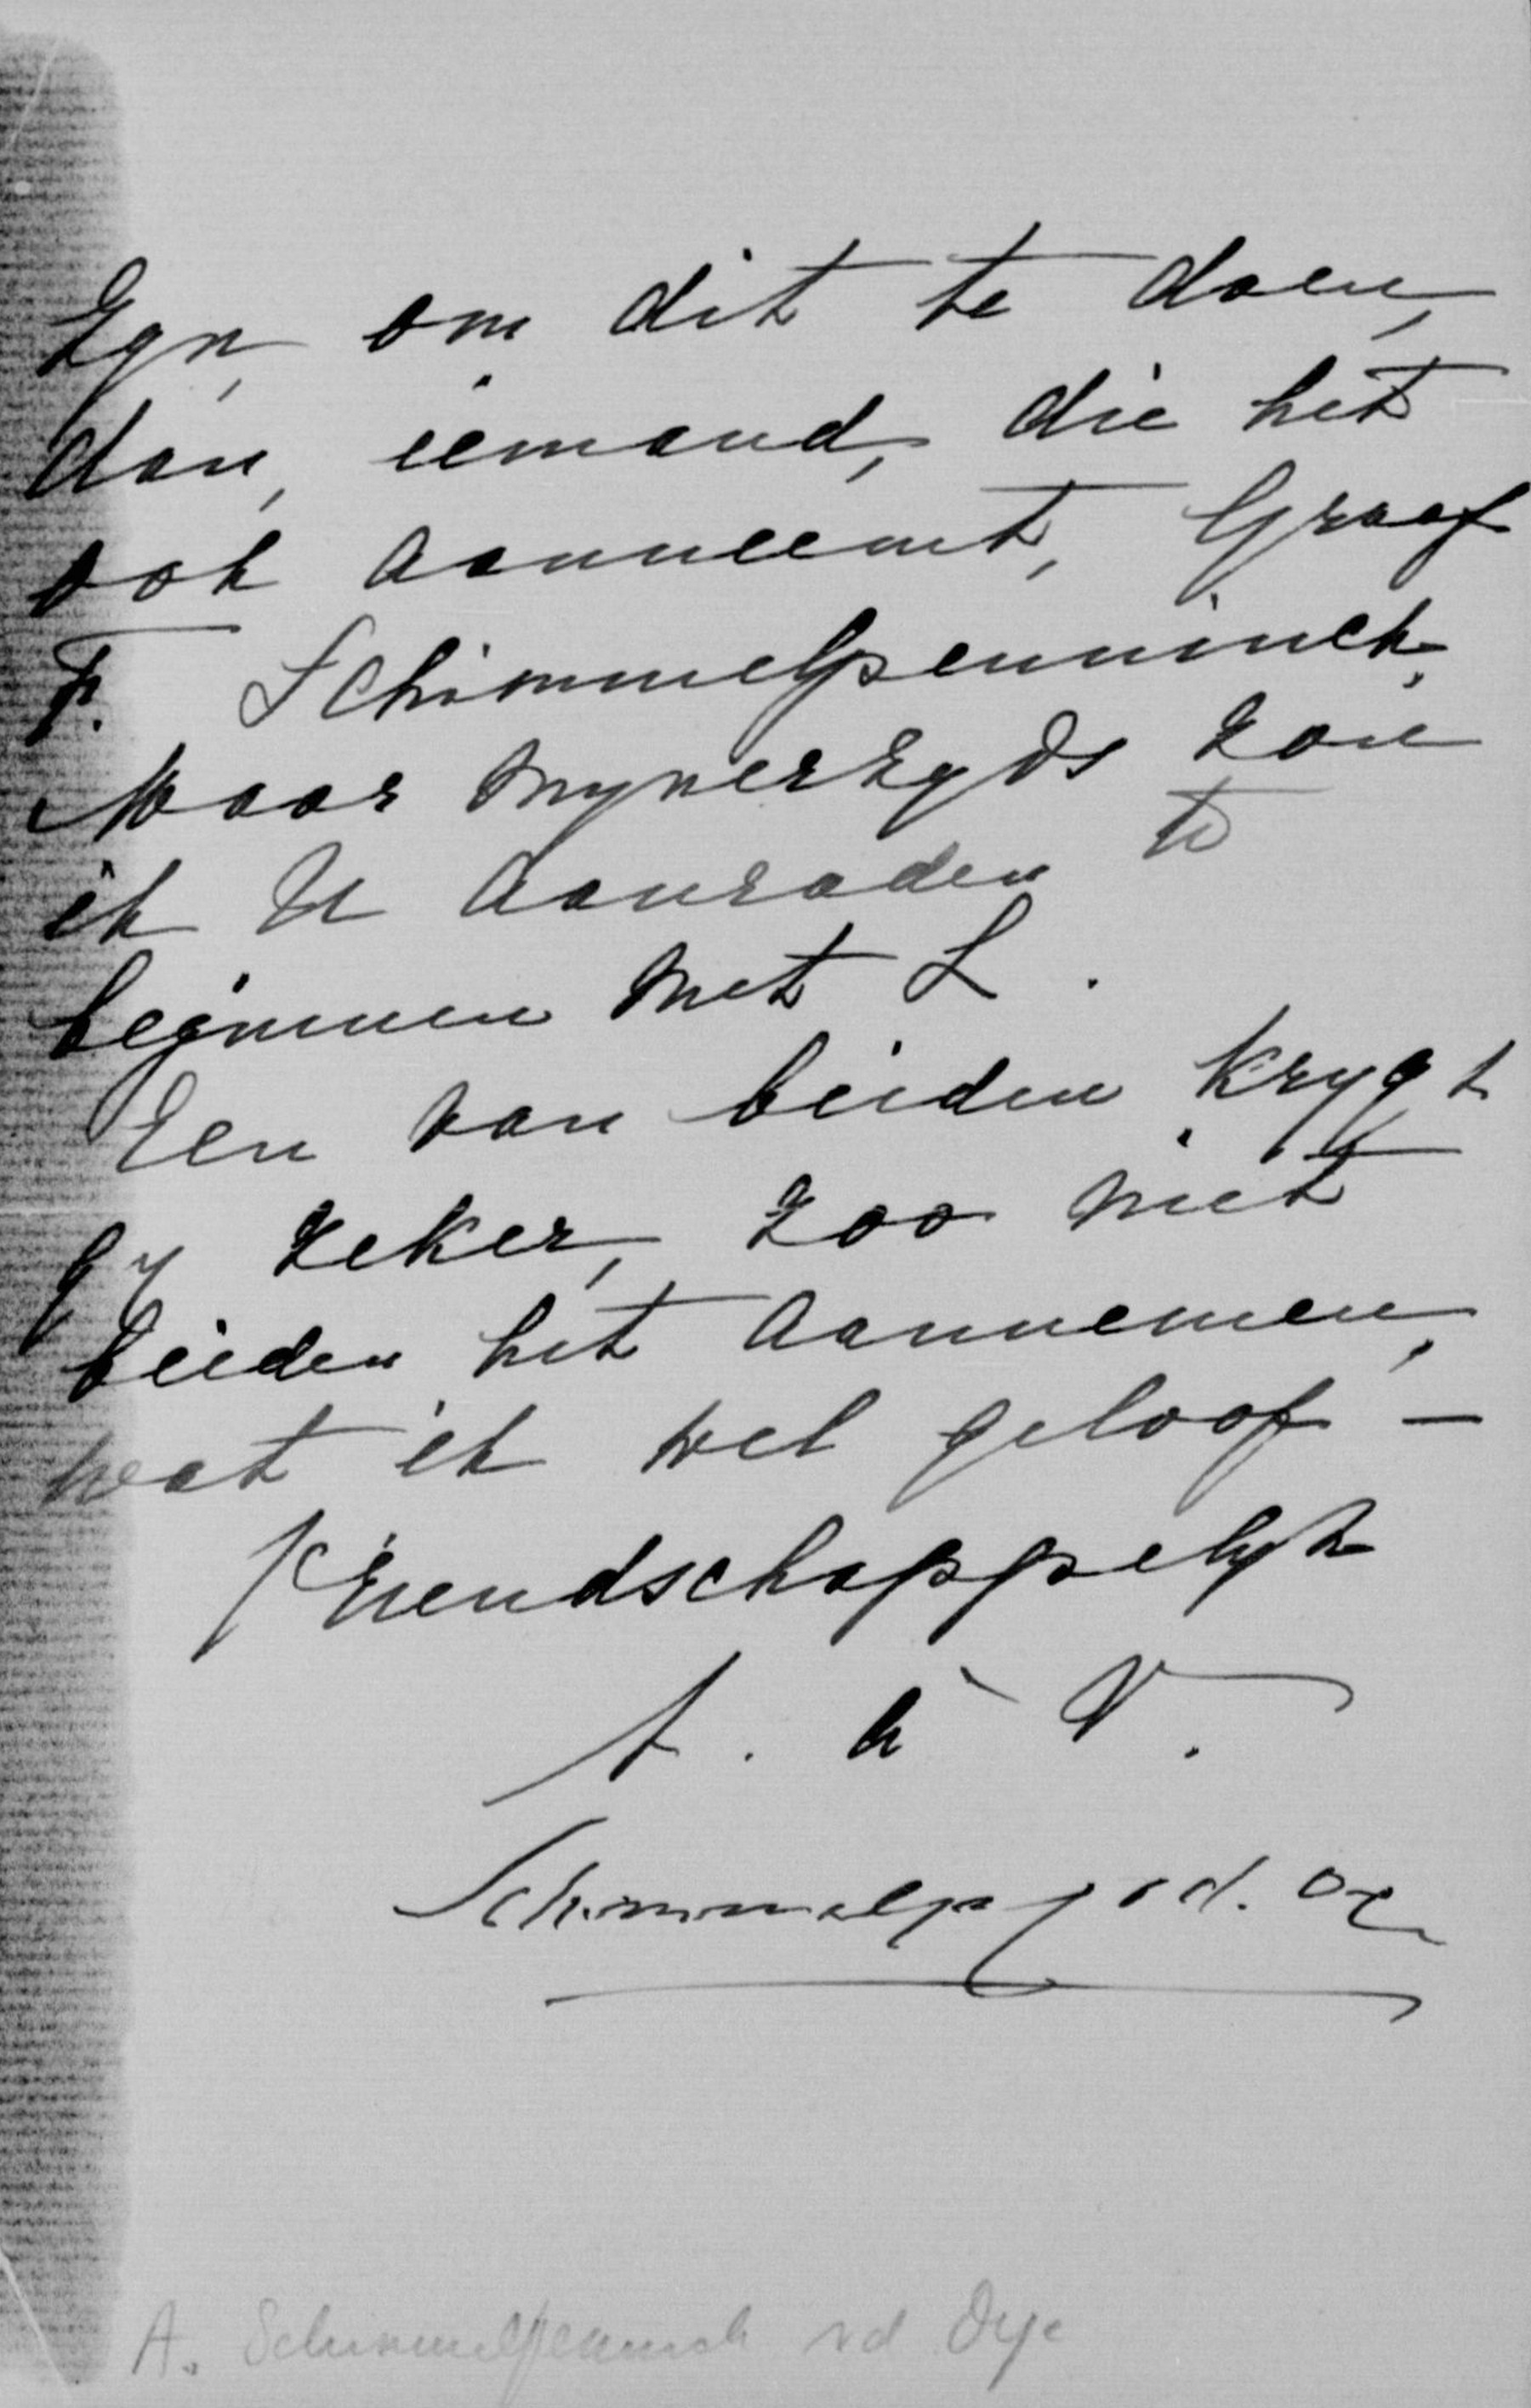 zyn, om dit te doen,
dan, iemand, die het
ook aanneemt, Graaf
F. Schimmelpenninck.
Maar mynerzyds zou
ik U aanraden te
beginnen met L.
Een van beiden krygt
gy zeker, zoo niet
beiden het aannemen,
wat ik wel geloof –
Vriendschappelyk
t. à V.
Schimmelp v d. Oye
A. Schimmelpenninck vd Oye